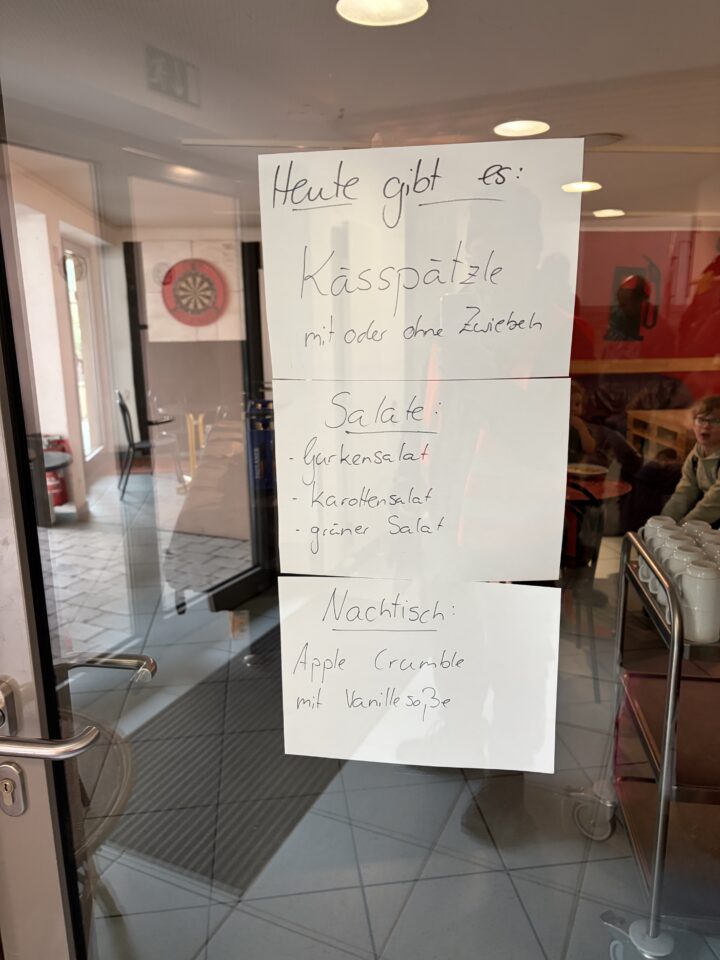 Heute gibt es:
Kässpätzle
mit oder ohne Zwiebeln
Salate:
- Gurkensalat
- Karottensalat
- grüner Salat
Nachtisch:
Apple Crumble
mit Vanillesoße